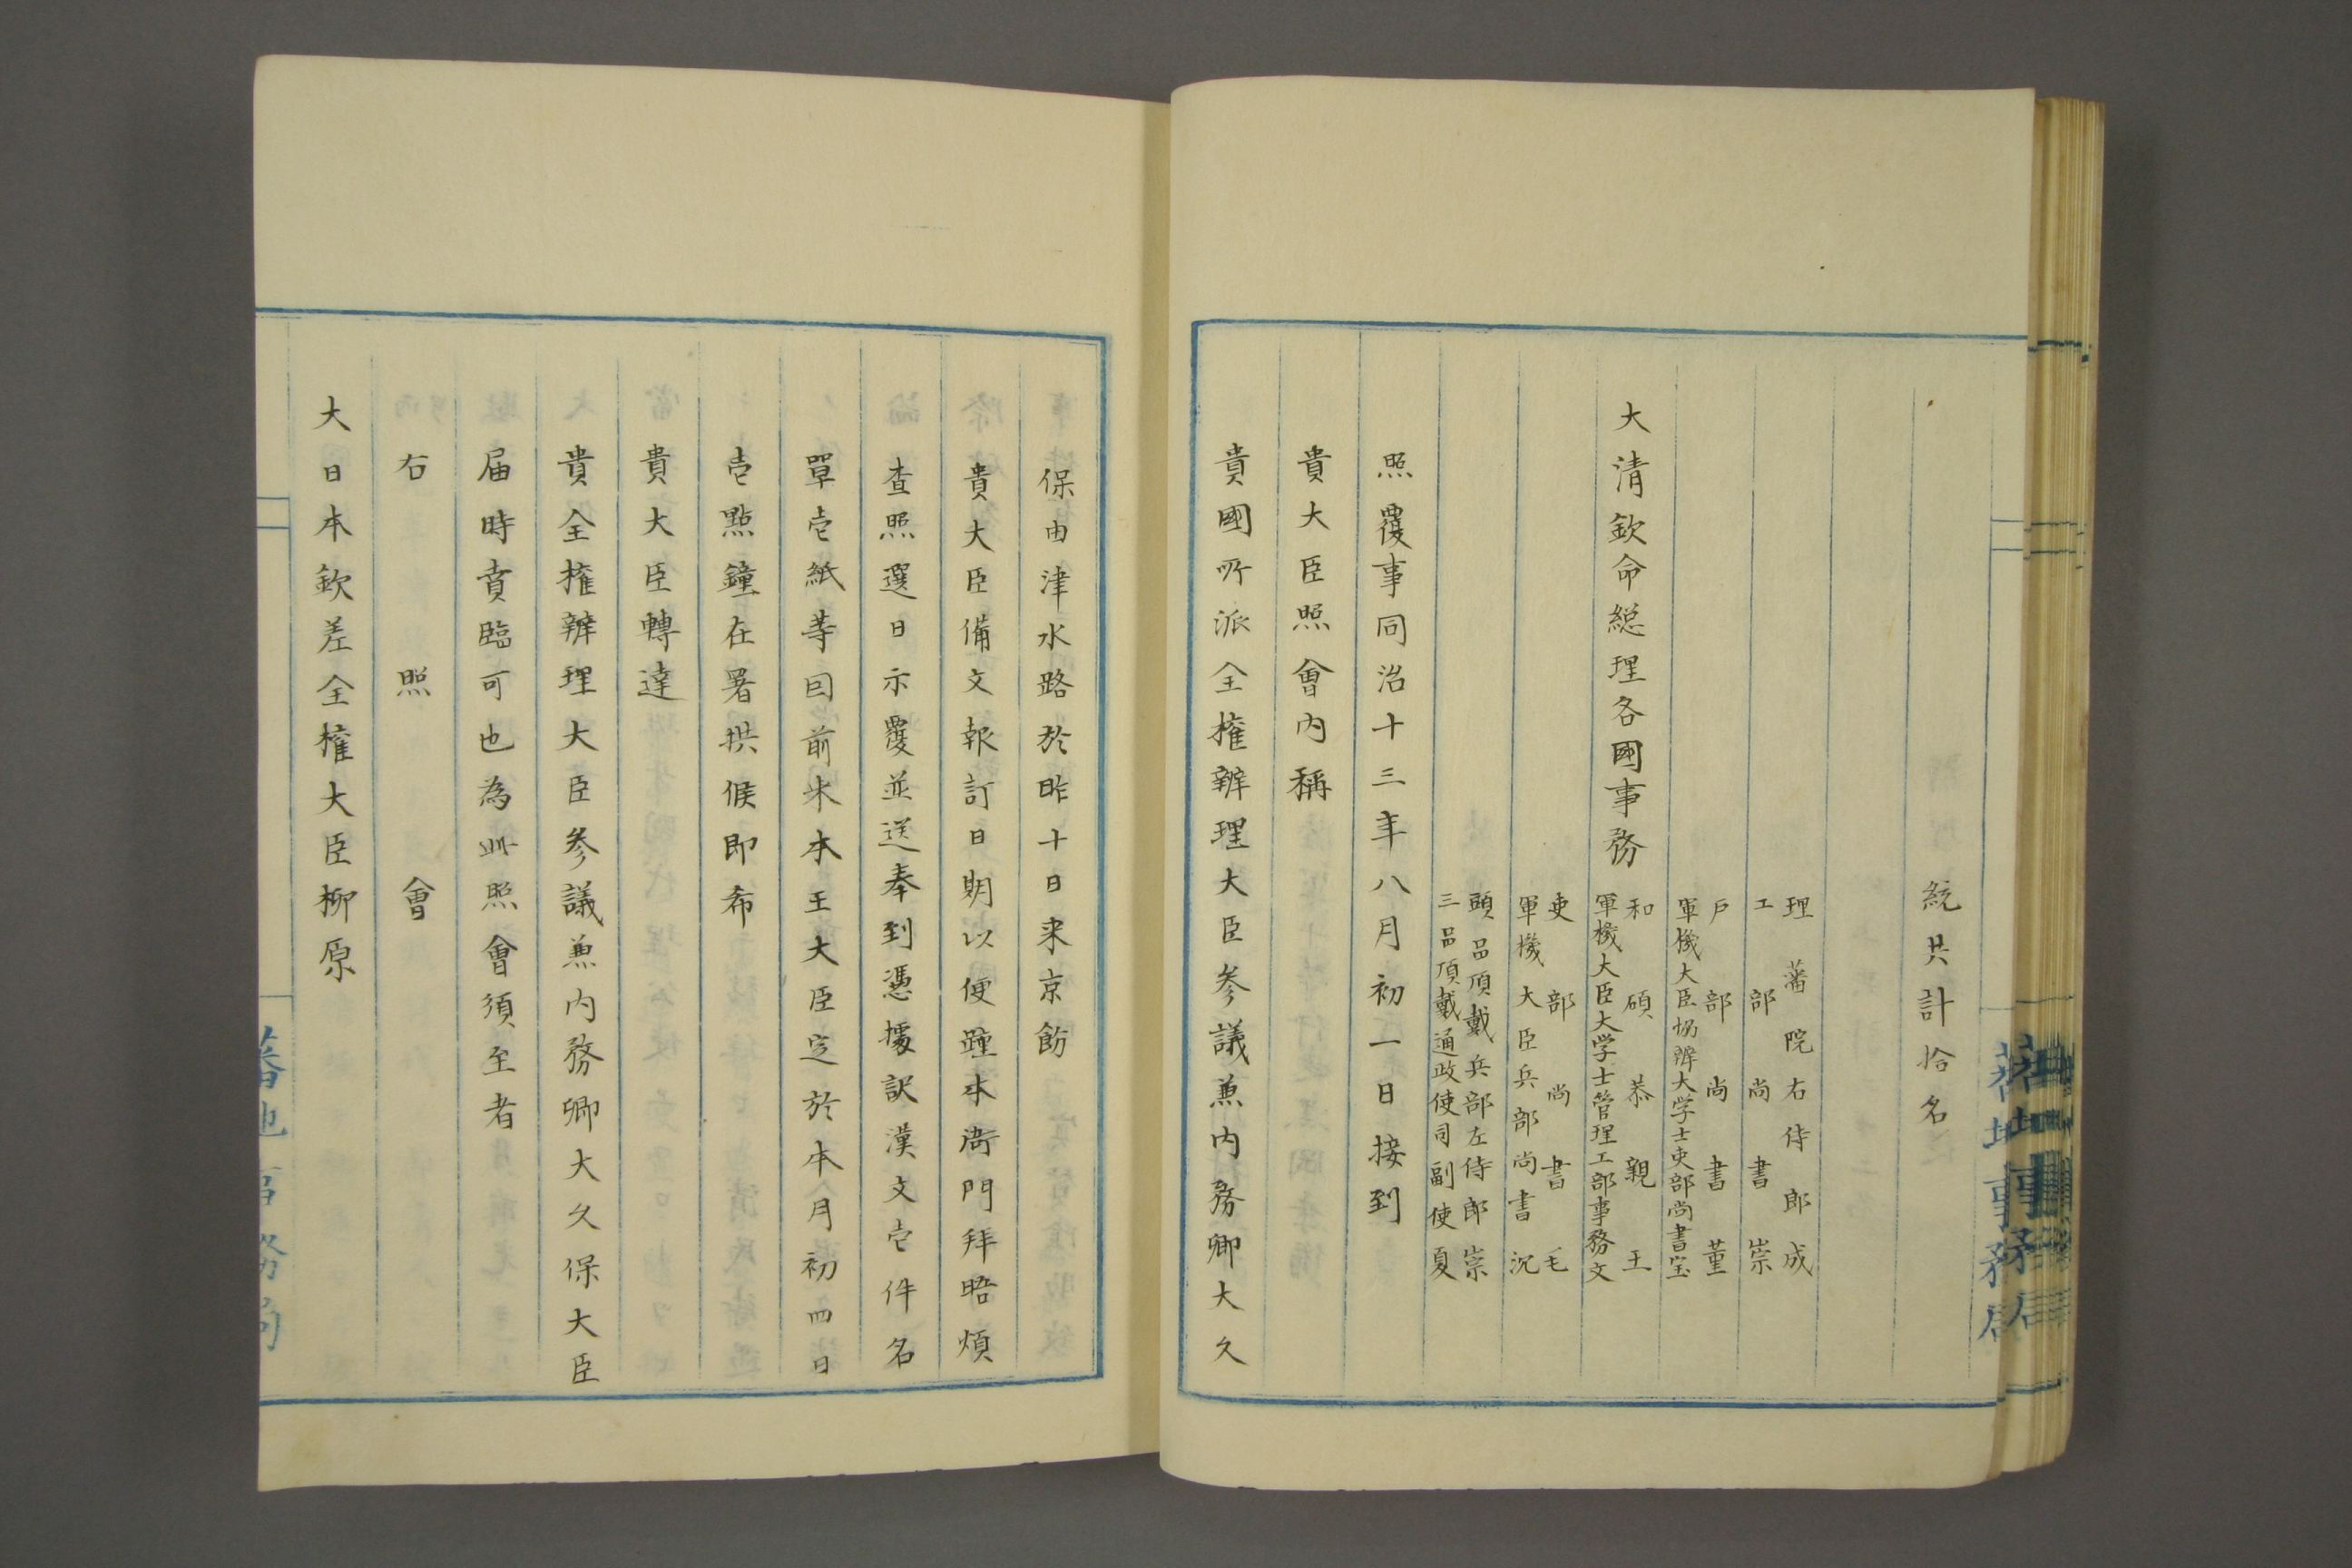 統共計拾名
理藩院右侍郎成
工部尚書崇
戶部尚書董
軍機大臣協辦大学士吏部尚書宝
大清欽命総理各國事務
和碩恭親王
軍機大臣大学士管理工部事務文
吏部尚書毛
軍機大臣兵部尚書沉
頭品頂戴兵部左侍郎崇
三品頂戴通政使司副使夏
照覆事同治十三年八月初一日接到
貴大臣照會內稱
貴國所派全権辦理大臣参議兼內務卿大久
保由津水路於昨十日来京飭
貴大臣備文報訂日期以便踵本衙門拜晤煩
查照選日示覆並送奉到憑據訳漢文壱件名
單壱紙等因前来本王大臣定於本月初四日
壱點鐘在署拱候即希
貴大臣轉達
貴全権辦理大臣参議兼內務卿大久保大臣
届時賁臨可也為此照會須至者
右照會
大日本欽差全権大臣柳原
蕃地事務局